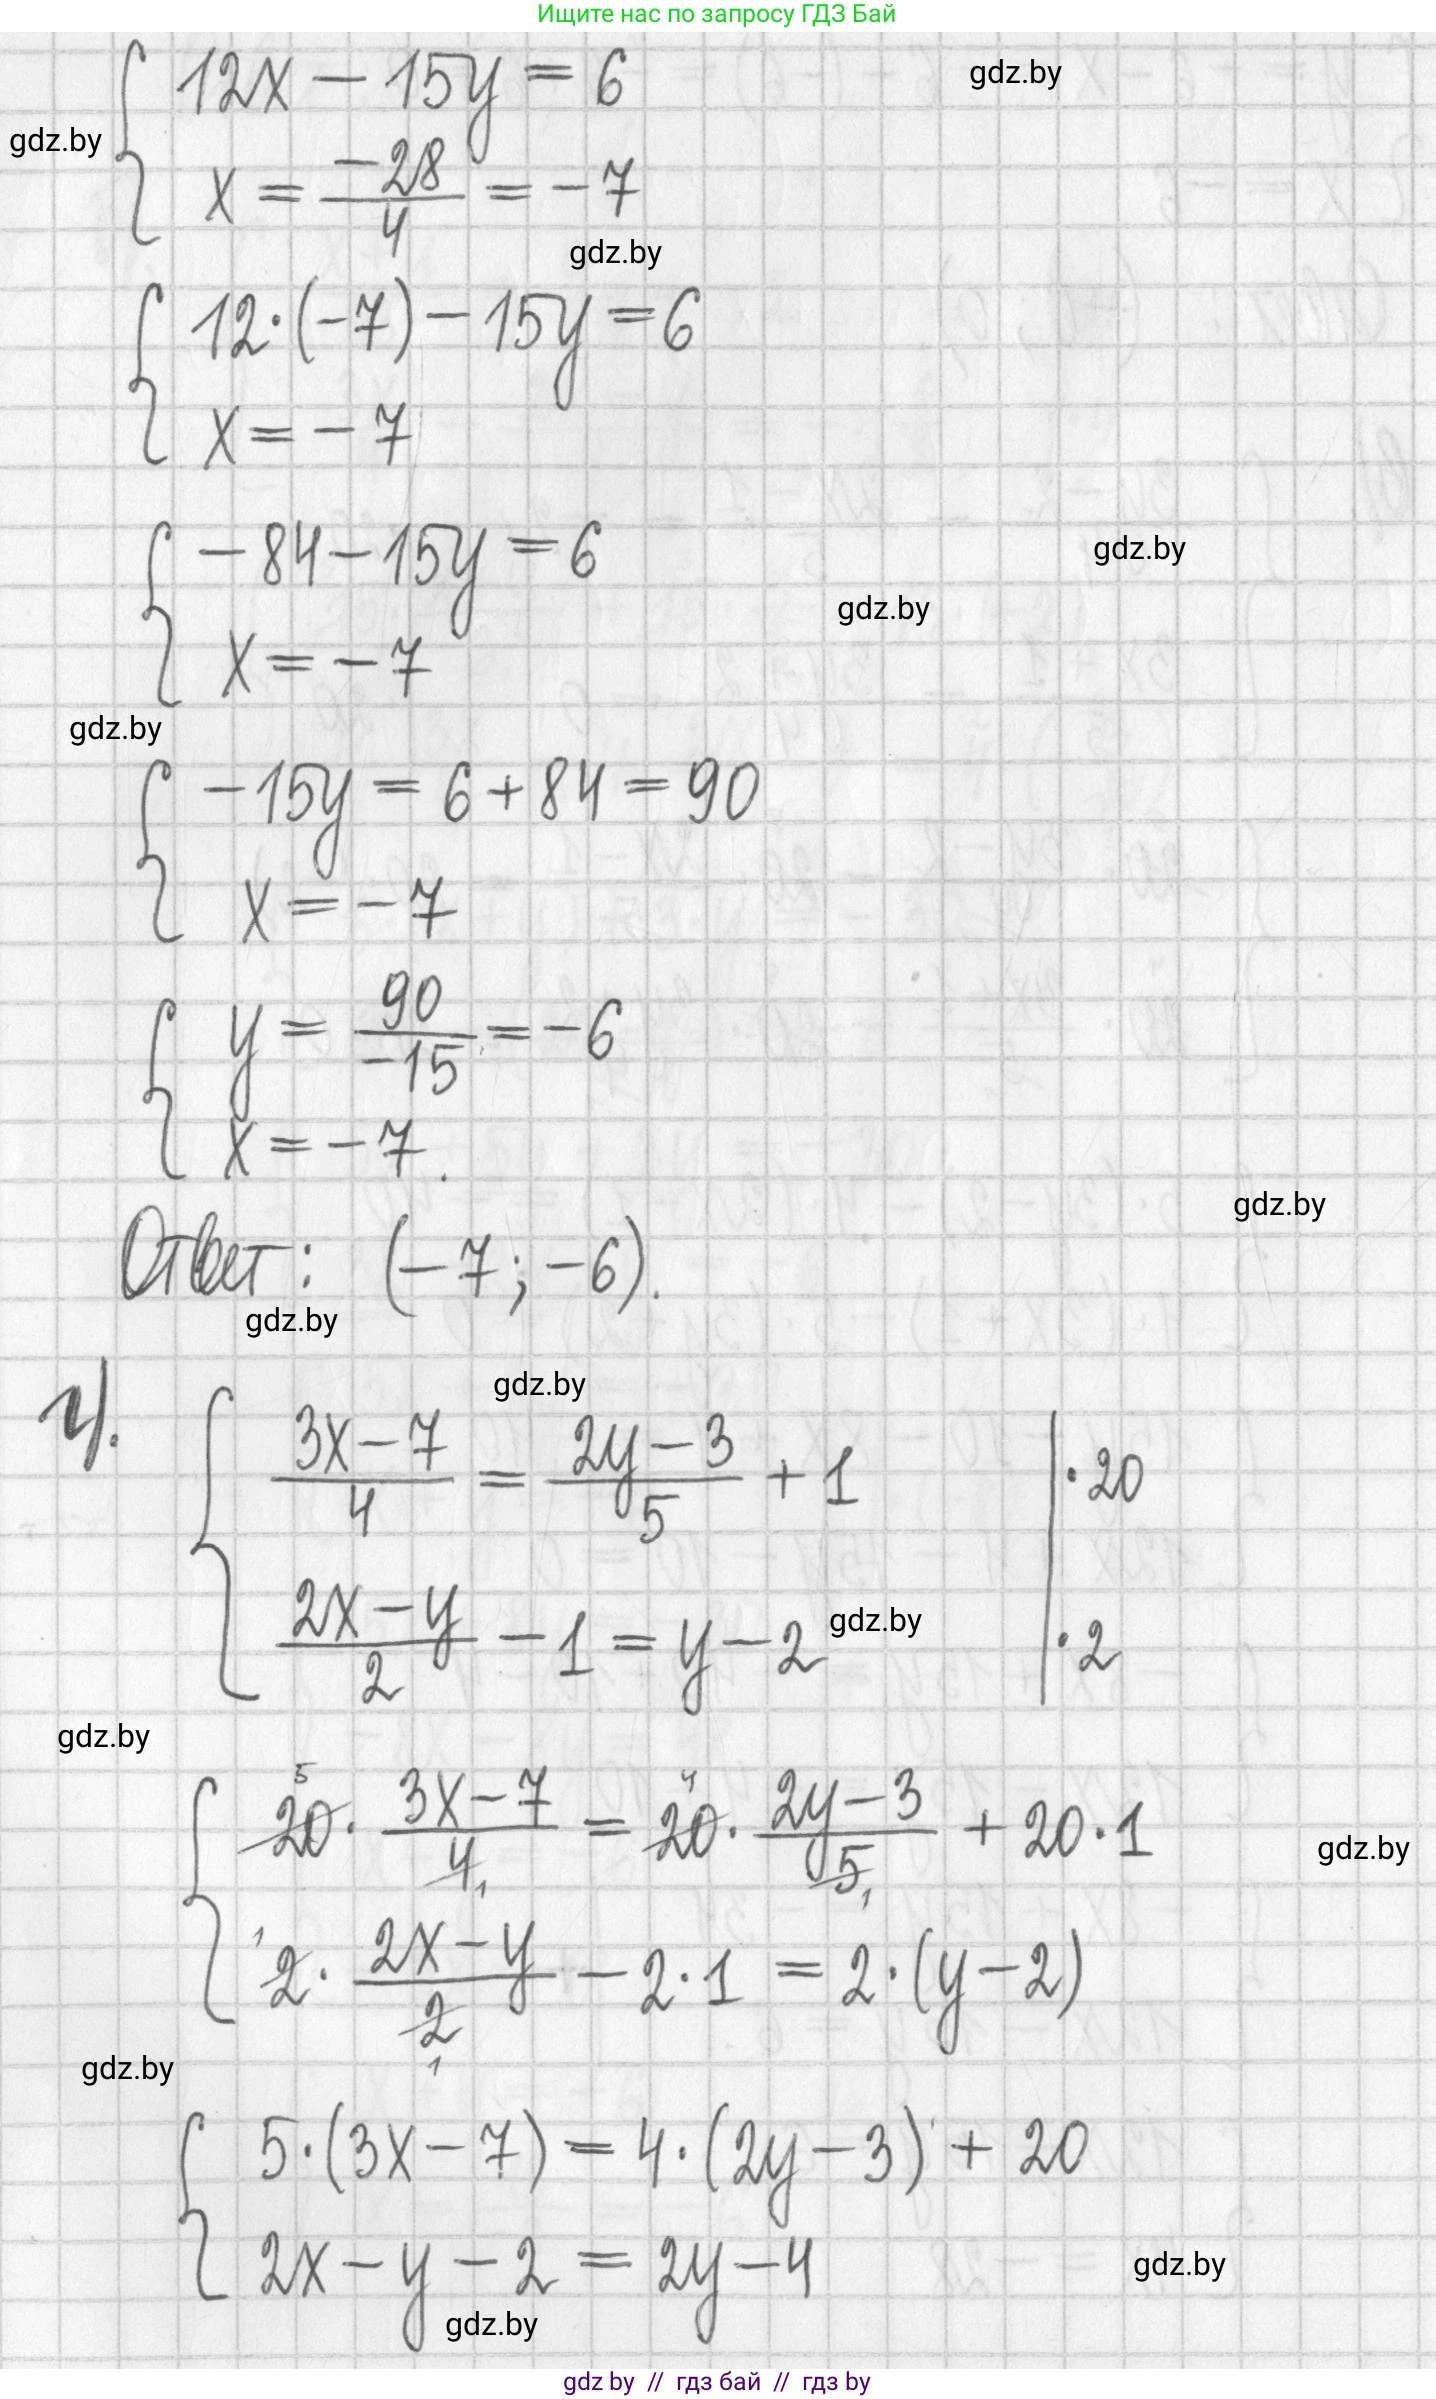 Ищите нас по запросу ГДЗ Бай
12x − 15y = 6
gdz.by
gdz.by
x = −28/4 = −7
gdz.by
12·(−7) − 15y = 6
x = −7
−84 − 15y = 6
gdz.by
gdz.by
x = −7
gdz.by
−15y = 6 + 84 = 90
x = −7
y = 90/−15 = −6
x = −7.
gdz.by
Ответ: (−7; −6).
gdz.by
gdz.by
г). (3x − 7)/4 = (2y − 3)/5 + 1 | ·20
(2x − y)/2 − 1 = y − 2 | ·2
gdz.by
gdz.by
5 4
20 · (3x − 7)/4 = 20 · (2y − 3)/5 + 20·1
gdz.by
1 1
1
2 · (2x − y)/2 − 2·1 = 2·(y − 2)
1
gdz.by
5·(3x − 7) = 4·(2y − 3) + 20
2x − y − 2 = 2y − 4
gdz.by
gdz.by
gdz by // гдз бай // гдз by